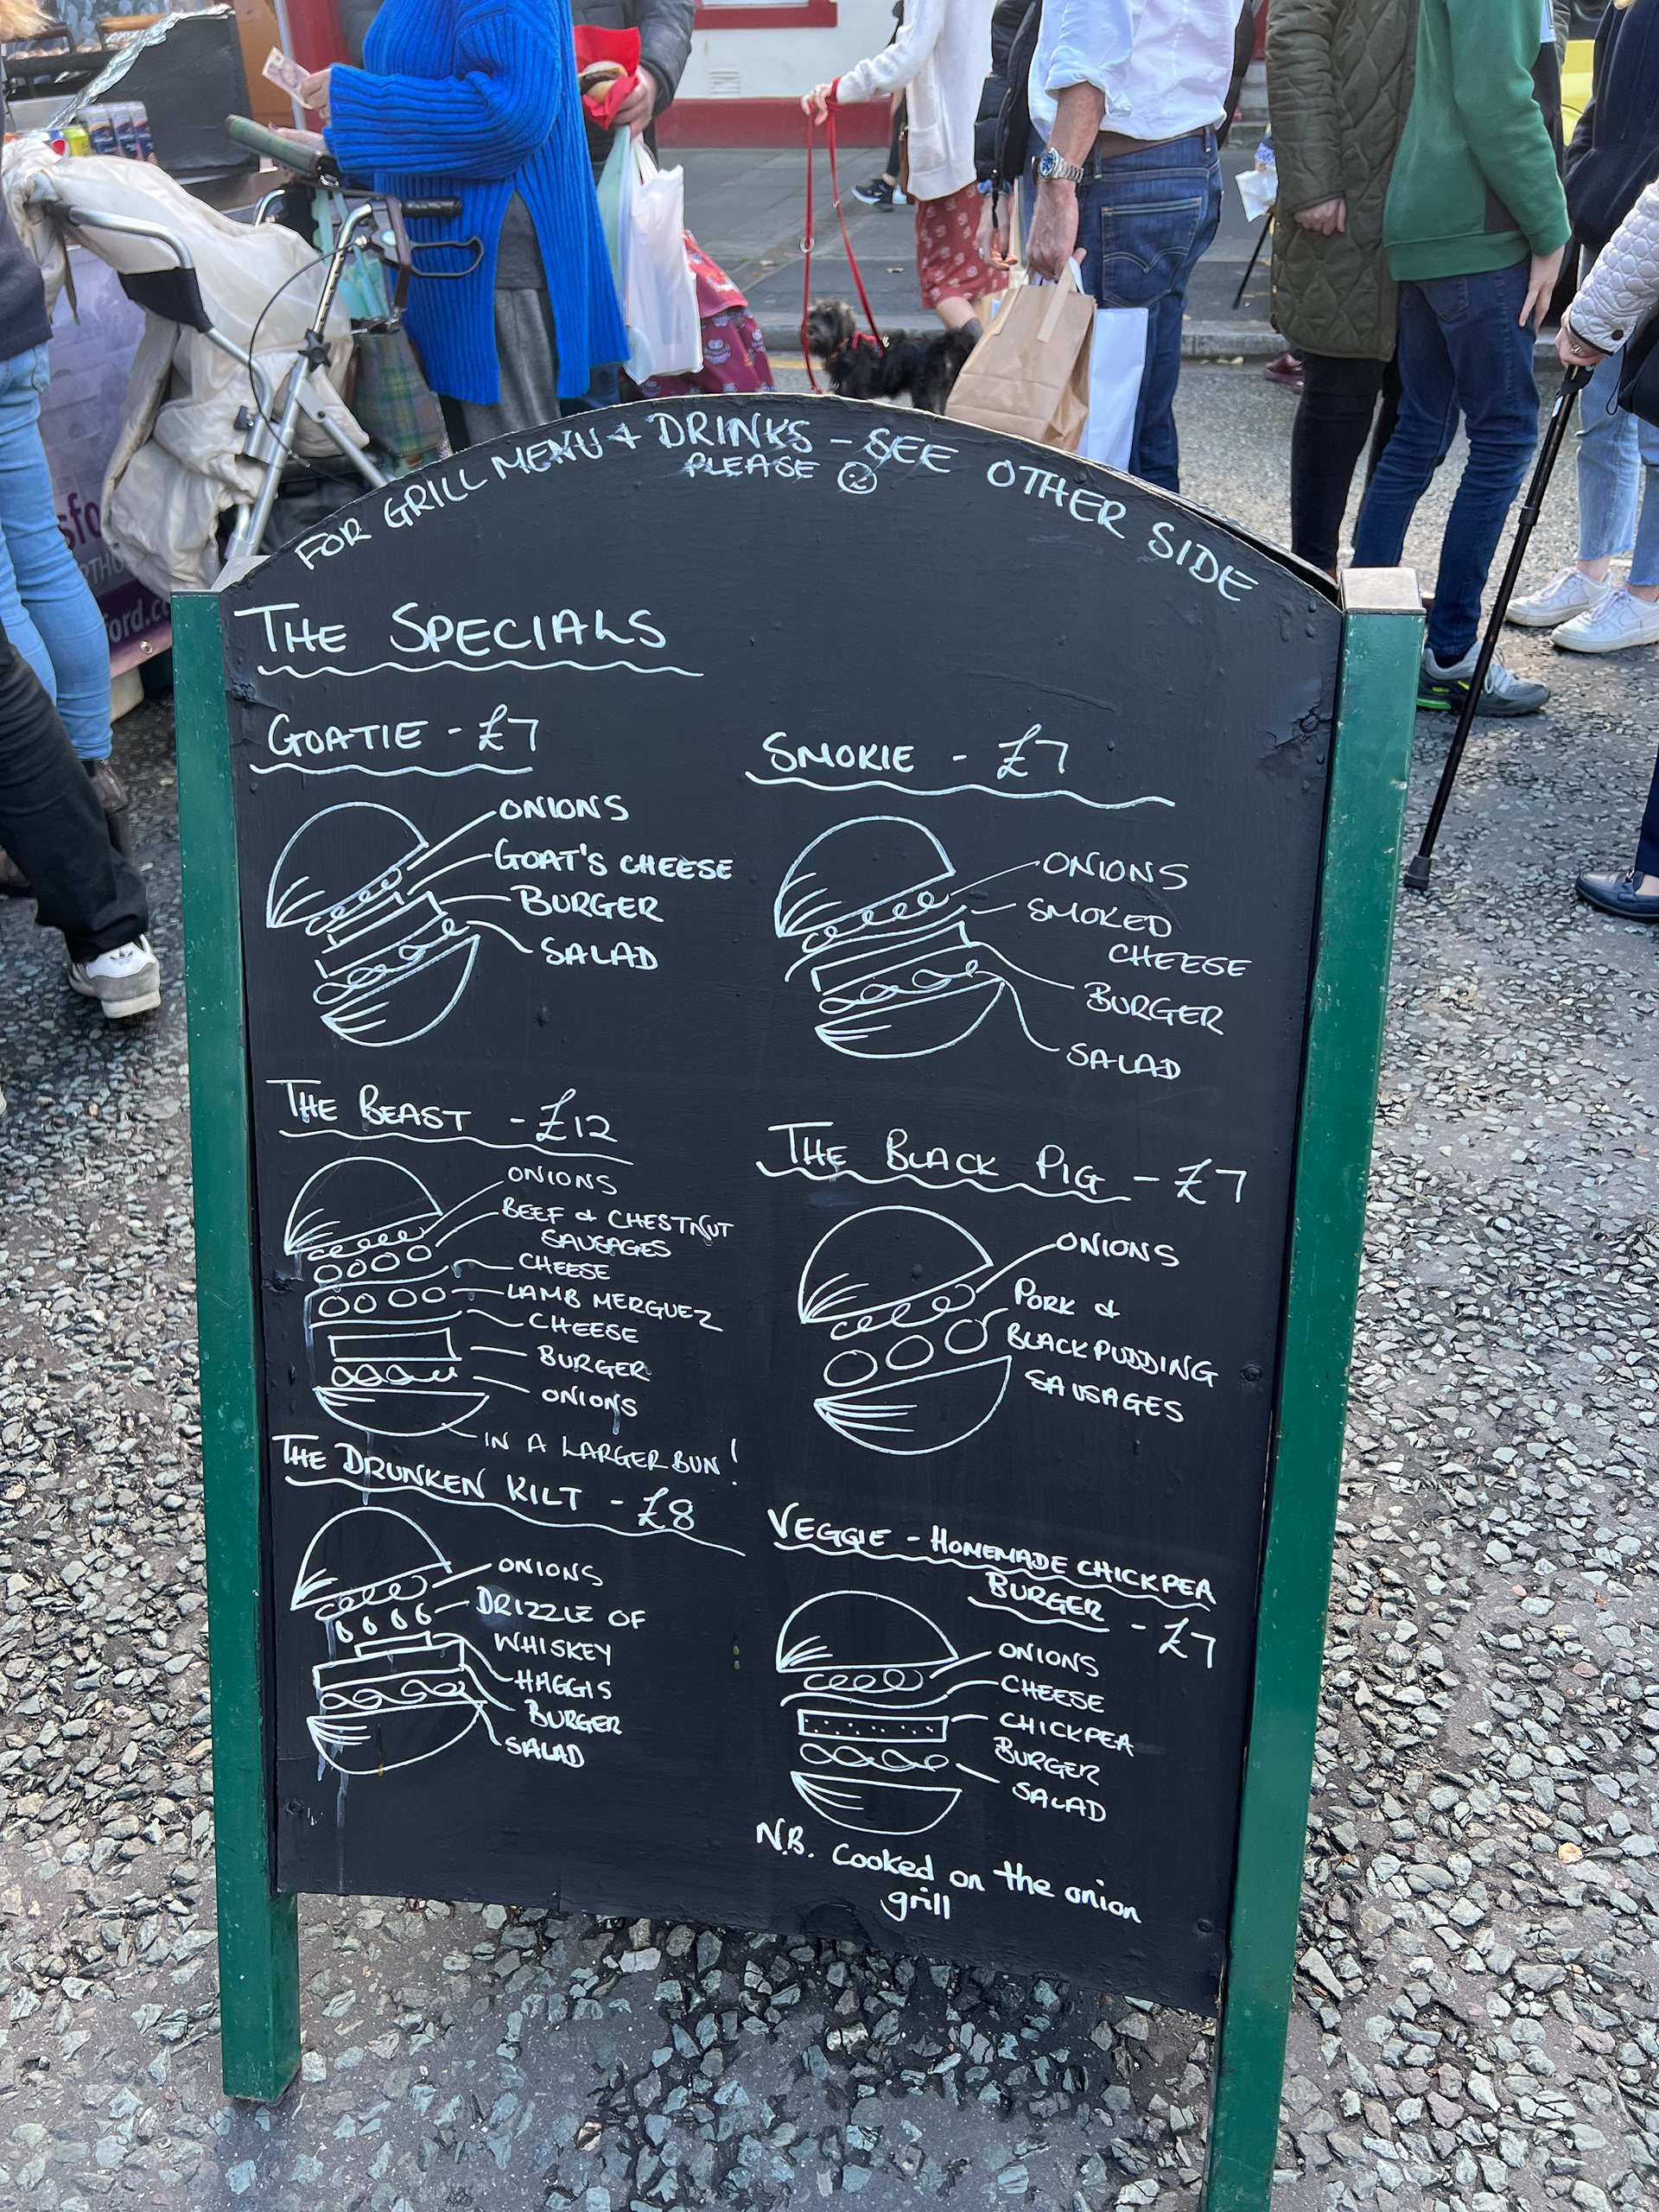 FOR GRILL MENU & DRINKS - SEE OTHER SIDE
PLEASE
THE SPECIALS
GOATIE - £7
ONIONS
GOAT'S CHEESE
BURGER
SALAD
SMOKIE - £7
ONIONS
SMOKED
CHEESE
BURGER
SALAD
THE BEAST - £12
ONIONS
BEEF & CHESTNUT
SAUSAGES
CHEESE
LAMB MERGUEZ
CHEESE
BURGER
ONIONS
IN A LARGER BUN!
THE BLACK PIG - £7
ONIONS
PORK &
BLACK PUDDING
SAUSAGES
THE DRUNKEN KILT - £8
ONIONS
DRIZZLE OF
WHISKEY
HAGGIS
BURGER
SALAD
VEGGIE - HOMEMADE CHICKPEA
BURGER - £7
ONIONS
CHEESE
CHICKPEA
BURGER
SALAD
N.B. Cooked on the onion
grill